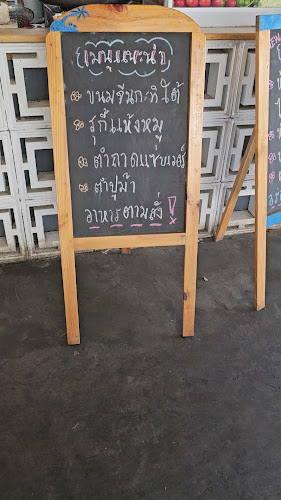 เมนูแนะนำ
ขนมจีนกะทิใต้
สุกี้แห้งหมู
ตำถาดแซ่บเวอร์
ตำปูม้า
อาหารตามสั่ง!